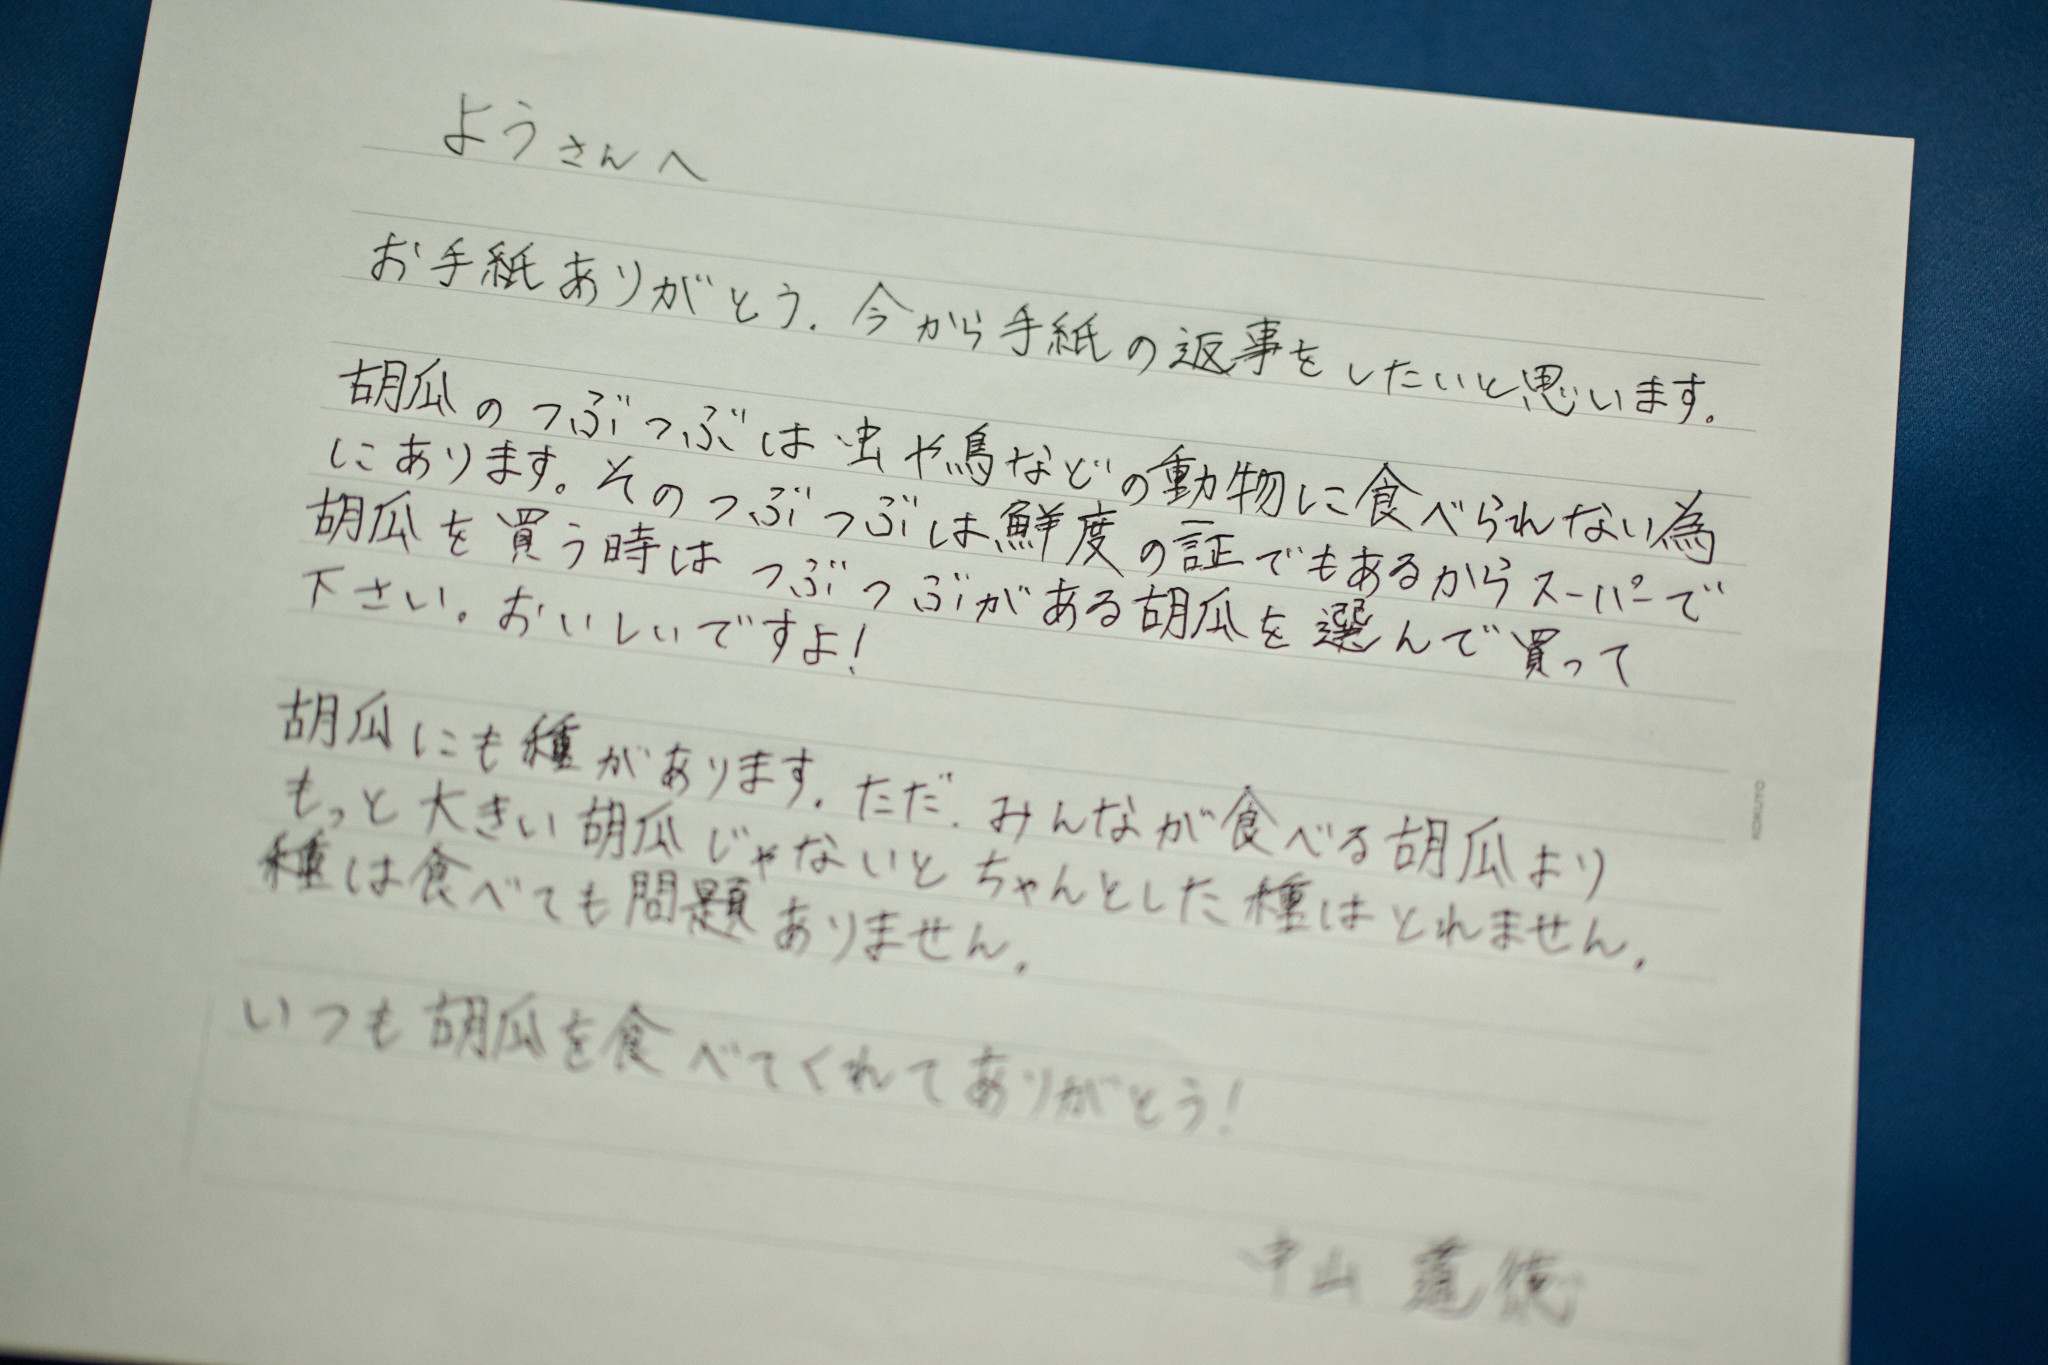 ようさんへ
お手紙ありがとう。今から手紙の返事をしたいと思います。
胡瓜のつぶつぶは虫や鳥などの動物に食べられない為
にあります。そのつぶつぶは鮮度の証でもあるからスーパーで
胡瓜を買う時はつぶつぶがある胡瓜を選んで買って
下さい。おいしいですよ!
胡瓜にも種があります。ただ、みんなが食べる胡瓜より
もっと大きい胡瓜じゃないとちゃんとした種はとれません。
種は食べても問題ありません。
いつも胡瓜を食べてくれてありがとう!
中山
KOKUYO